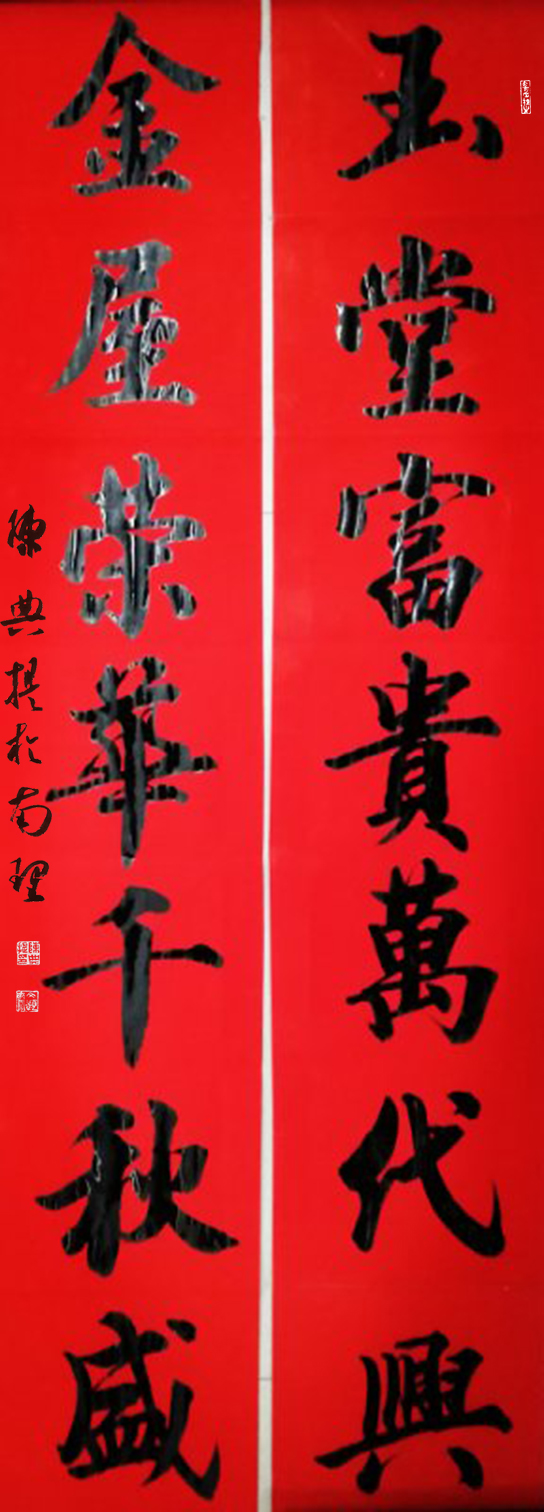 玉堂富貴萬代興
金屋荣華千秋盛
陳典提於南理